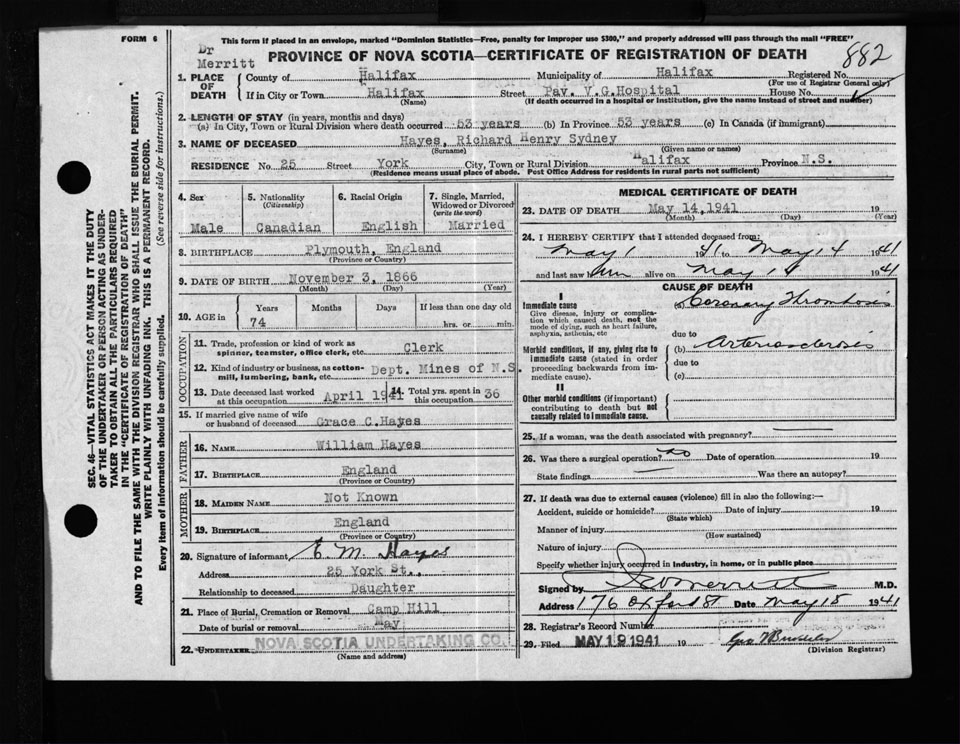 FORM 6
This form if placed in an envelope, marked "Dominion Statistics—Free, penalty for improper use $300," and properly addressed will pass through the mail "FREE"
Dr
Merritt
PROVINCE OF NOVA SCOTIA—CERTIFICATE OF REGISTRATION OF DEATH
882
1. PLACE OF DEATH
County of Halifax Municipality of Halifax Registered No.
(For use of Registrar General only)
If in City or Town Halifax Street Pav. V.G.Hospital House No.
(Name) (If death occurred in a hospital or institution, give the name instead of street and number)
2. LENGTH OF STAY (in years, months and days)
(a) In City, Town or Rural Division where death occurred 53 years (b) In Province 53 years (c) In Canada (if immigrant)
3. NAME OF DECEASED Hayes, Richard Henry Sydney
(Surname) (Given name or names)
RESIDENCE No. 25 Street York City, Town or Rural Division Halifax Province N.S.
(Residence means usual place of abode. Post Office Address for residents in rural parts not sufficient)
4. Sex
Male
5. Nationality
(Citizenship)
Canadian
6. Racial Origin
English
7. Single, Married, Widowed or Divorced
(write the word)
Married
8. BIRTHPLACE Plymouth, England
(Province or Country)
9. DATE OF BIRTH November 3, 1866
(Month) (Day) (Year)
10. AGE in
Years Months Days If less than one day old
74 hrs. or min.
OCCUPATION
11. Trade, profession or kind of work as
spinner, teamster, office clerk, etc. Clerk
12. Kind of industry or business, as cotton-
mill, lumbering, bank, etc. Dept. Mines of N.S.
13. Date deceased last worked
at this occupation April 1941
14. Total yrs. spent in
this occupation 36
15. If married give name of wife
or husband of deceased Grace C.Hayes
FATHER
16. NAME William Hayes
17. BIRTHPLACE England
(Province or Country)
MOTHER
18. MAIDEN NAME Not Known
19. BIRTHPLACE England
(Province or Country)
20. Signature of informant E. M. Hayes
Address 25 York St.,
Relationship to deceased Daughter
21. Place of Burial, Cremation or Removal Camp Hill
Date of burial or removal May
22. UNDERTAKER NOVA SCOTIA UNDERTAKING CO.
(Name and address)
MEDICAL CERTIFICATE OF DEATH
23. DATE OF DEATH May 14, 1941 19
(Month) (Day) (Year)
24. I HEREBY CERTIFY that I attended deceased from:
May 1 1941 to May 14 1941
and last saw him alive on May 14 1941
CAUSE OF DEATH
I
Immediate cause (a) Coronary Thrombosis
Give disease, injury or complica-
tion which caused death, not the
mode of dying, such as heart failure,
asphyxia, asthenia, etc
due to
Morbid conditions, if any, giving rise to
immediate cause (stated in order
proceeding backwards from im-
mediate cause).
(b) Arteriosclerosis
due to
(c)
II
Other morbid conditions (if important)
contributing to death but not
causally related to immediate cause.
25. If a woman, was the death associated with pregnancy?
26. Was there a surgical operation? no Date of operation 19
State findings Was there an autopsy?
27. If death was due to external causes (violence) fill in also the following:—
Accident, suicide or homicide? Date of injury 19
(State which)
Manner of injury
(How sustained)
Nature of injury
Specify whether injury occurred in industry, in home, or in public place
Signed by Merritt M.D.
Address 176 Oxford St Date May 15 1941
28. Registrar's Record Number
29. Filed MAY 19 1941 19
(Division Registrar)
SEC. 46—VITAL STATISTICS ACT MAKES IT THE DUTY
OF THE UNDERTAKER OR PERSON ACTING AS UNDER-
TAKER TO OBTAIN ALL THE PARTICULARS REQUIRED
IN THE "CERTIFICATE OF REGISTRATION OF DEATH"
AND TO FILE THE SAME WITH THE DIVISION REGISTRAR WHO SHALL ISSUE THE BURIAL PERMIT.
WRITE PLAINLY WITH UNFADING INK. THIS IS A PERMANENT RECORD.
Every item of information should be carefully supplied. (See reverse side for instructions.)